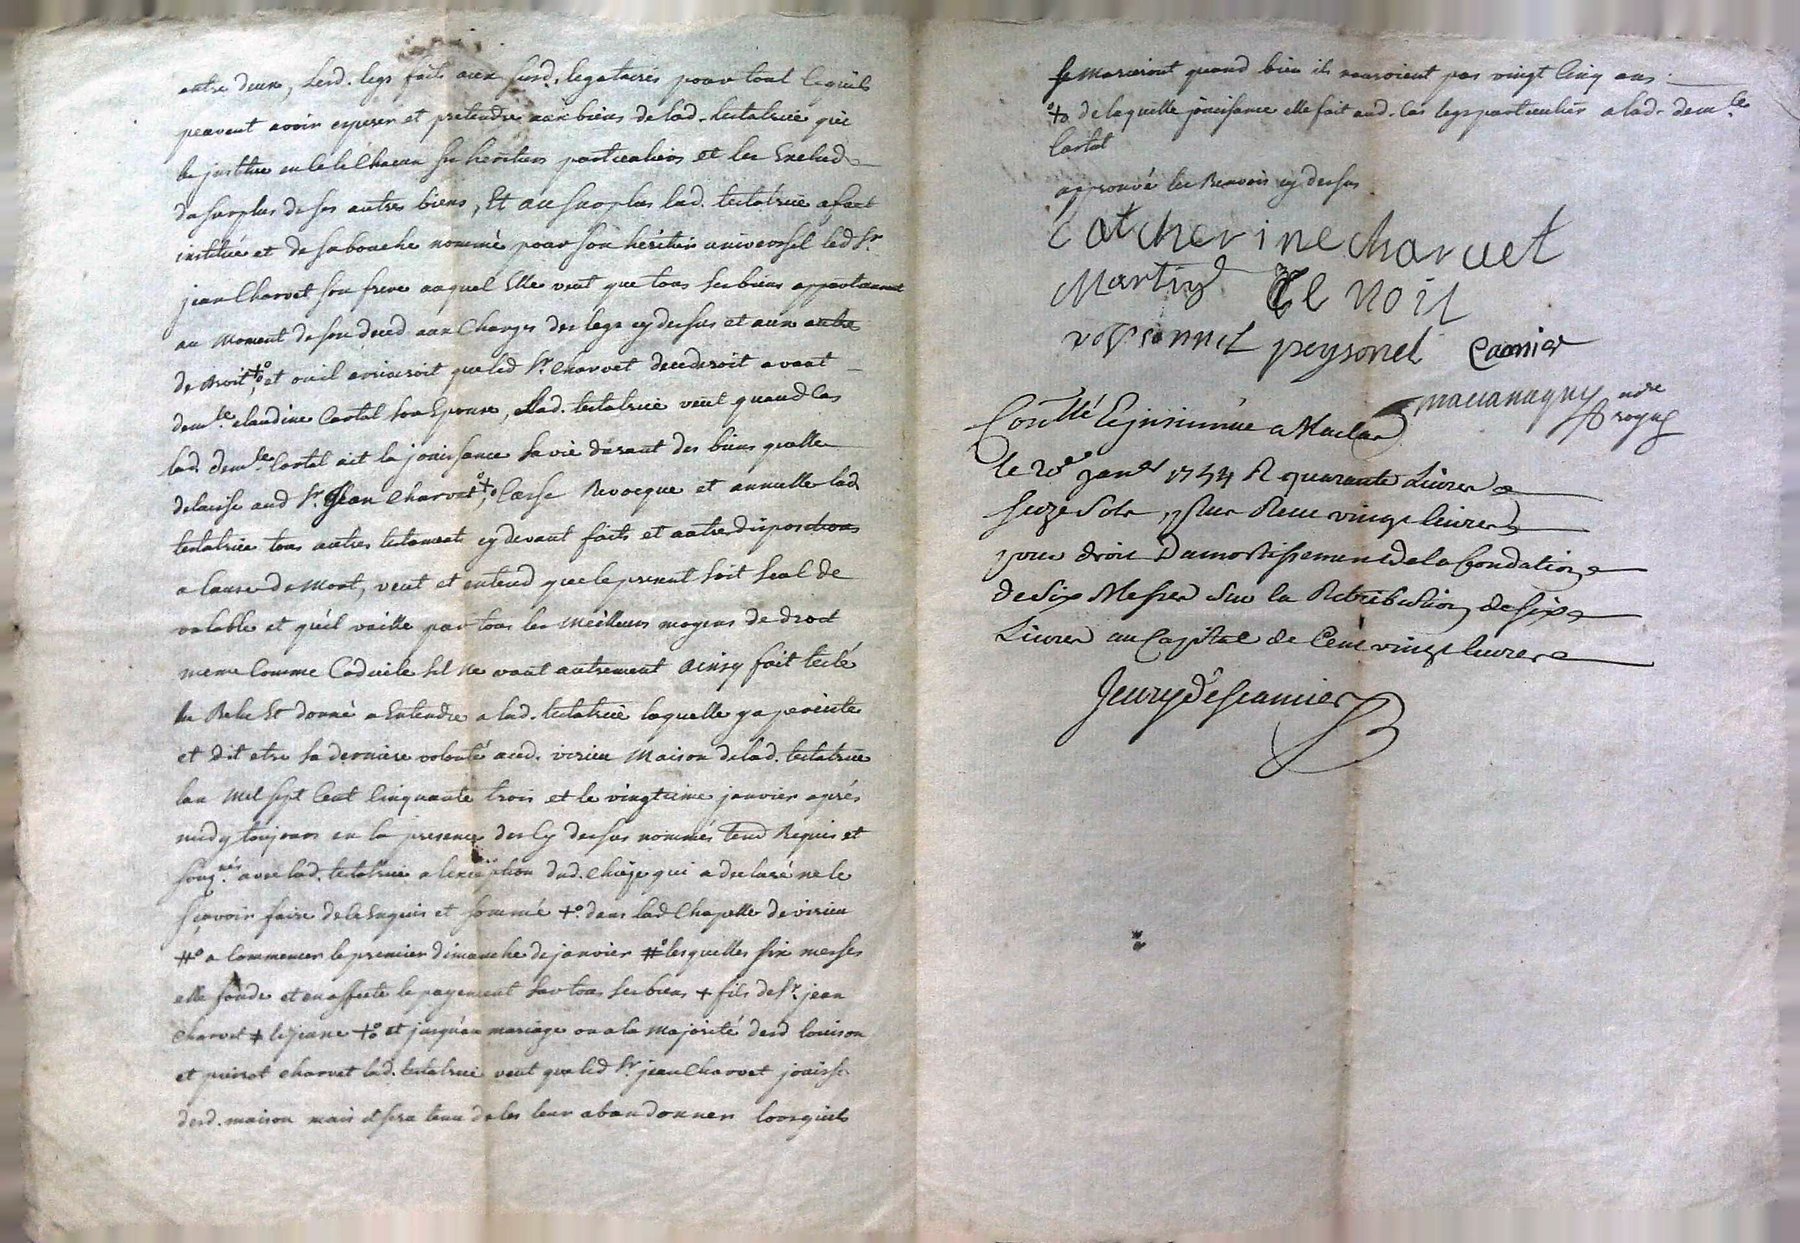 entre deux, lesd. legs faits aux susd. legataires pour tout ce quils
peuvent avoir esperer et pretendre aux biens de lad. testatrice qui
les institue en ce le chacun ses heritiers particuliers et les Exclud
du surplus de ses autres biens, Et au surplus lad. testatrice a fait
institué et de sa bouche nommé pour son héritier universel led Sr
jean Charvet son frere auquel Elle veut que tous ses biens appartiennent
au moment de son deced aux Charges des legs cy dessus et aux autre
de droit +o et ou il arriveroit que led Sr. Charvet decederoit avant
demlle. claudine Cartal son Epouse, Lad. testatrice veut quaud Cas
lad. demlle. Cartal ait la jouissance sa vie durant des biens quelle
delaisse aud Sr. Jean Charvet +o, Casse Revocque et annulle lad
testatrice tous autres testaments cy devant faits et autre dispositions
a cause de Mort, veut et entend que le present soit seul de
valable et quil vaille par tous les Meilleurs moyens de droit
meme Comme Codicile sil ne vaut autrement Ainsy fait testé
lu Relu Et donné a Entendre a lad. testatrice laquelle y a persisté
et dit etre sa derniere volonté aud. virieu Maison de lad. testatrice
lan Mil sept Cent Cinquante trois et le vingtieme janvier après
midy toujours en la presence des Cy dessus nommés tems Requis et
sousnés avec lad. testatrice a lexception dud. Chieze qui a declaré ne le
sçavoir faire de ce Enquis et sommé +o. dans lad Chapelle de virieu
#o a Commencer le premier dimanche de janvier #o lesquelles six messes
elle fonde et en affecte le payement sur tous ses biens + fils de Sr. jean
Charvet # le jeune +o et jusquau mariage ou a la majorité desd louison
et poirot charvet lad. testatrice veut que led Sr. jean Charvet jouisse
desd. maison mais et sera tenu de les leur abandonner lorsquils
se marieront quand bien ils nauroient pas vingt Cinq ans.
+o de laquelle jouissance elle fait aud. Cas legs particulier a lad. demlle
Cartal
approuvé les Renvois cy dessus
Catherine charvet
Martin Te Noit
peysonel Carnier
nore
royal
Conllé Et insinué a Maclas
le 20e janer 1754 R quarante Livres
seize Sols, Plus Receu vingt livres
pour droit Damortissement de la fondation
de six Messes Sur la Retribution de six
Livres au Capital de Cent vingt livres